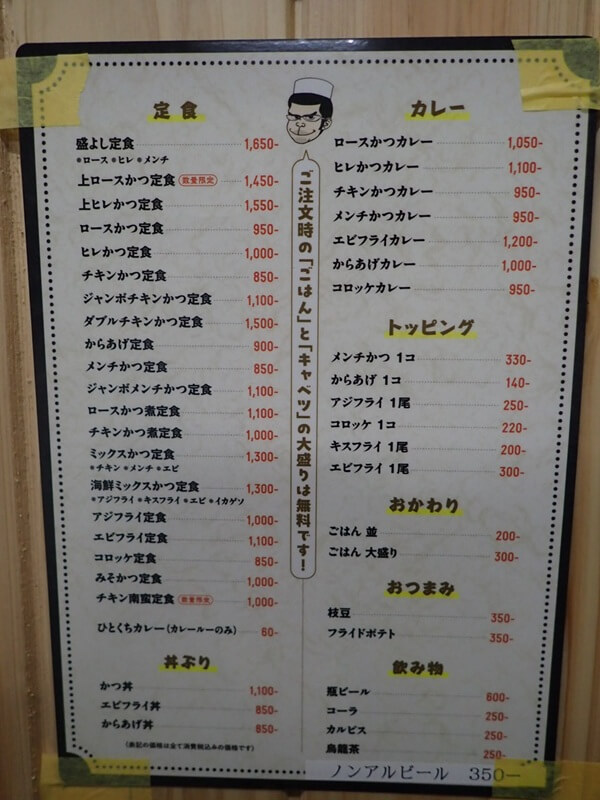 定食
盛よし定食 1,650-
*ロース *ヒレ *メンチ
上ロースかつ定食 数量限定 1,450-
上ヒレかつ定食 1,550-
ロースかつ定食 950-
ヒレかつ定食 1,000-
チキンかつ定食 850-
ジャンボチキンかつ定食 1,100-
ダブルチキンかつ定食 1,500-
からあげ定食 900-
メンチかつ定食 850-
ジャンボメンチかつ定食 1,100-
ロースかつ煮定食 1,100-
チキンかつ煮定食 1,000-
ミックスかつ定食 1,300-
*チキン *メンチ *エビ
海鮮ミックスかつ定食 1,300-
*アジフライ *キスフライ *エビ *イカゲソ
アジフライ定食 1,000-
エビフライ定食 1,100-
コロッケ定食 850-
みそかつ定食 1,000-
チキン南蛮定食 数量限定 1,000-
ひとくちカレー(カレールーのみ) 60-
丼ぶり
かつ丼 1,100-
エビフライ丼 850-
からあげ丼 850-
(表記の価格は全て消費税込みの価格です)
ご注文時の「ごはん」と「キャベツ」の大盛りは無料です!
カレー
ロースかつカレー 1,050-
ヒレかつカレー 1,100-
チキンかつカレー 950-
メンチかつカレー 950-
エビフライカレー 1,200-
からあげカレー 1,000-
コロッケカレー 950-
トッピング
メンチかつ 1コ 330-
からあげ 1コ 140-
アジフライ 1尾 250-
コロッケ 1コ 220-
キスフライ 1尾 200-
エビフライ 1尾 300-
おかわり
ごはん 並 200-
ごはん 大盛り 300-
おつまみ
枝豆 350-
フライドポテト 350-
飲み物
瓶ビール 600-
コーラ 250-
カルピス 250-
烏龍茶 250-
ノンアルビール 350-